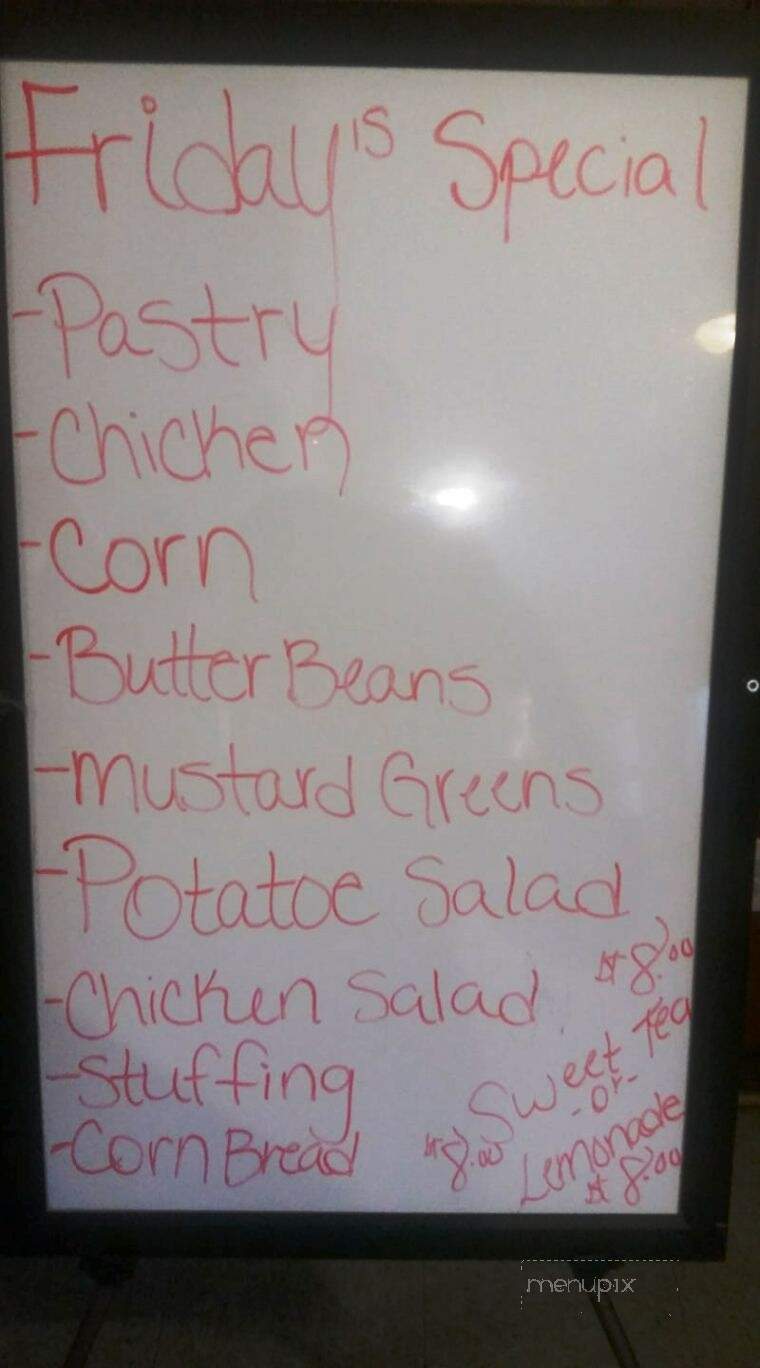 Friday's Special
-Pastry
-Chicken
-Corn
-Butter Beans
-Mustard Greens
-Potatoe Salad
-Chicken Salad
-Stuffing
-Corn Bread
$8.00
Sweet Tea
-or-
Lemonade
$8.00
$8.00
menupix